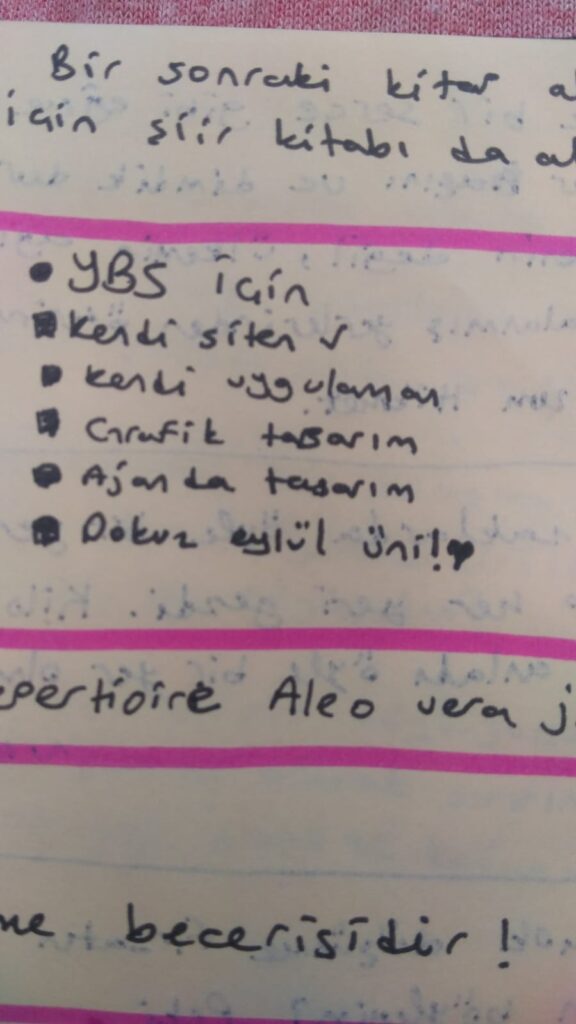 Bir sonraki kitap al
için şiir kitabı da al
• YBS için
• Kendi siten ✓
• Kendi uygulaman
• Grafik tasarım
• Ajanda tasarım
• Dokuz eylül üni!♥
epertioire Aleo vera j
me becerisidir !